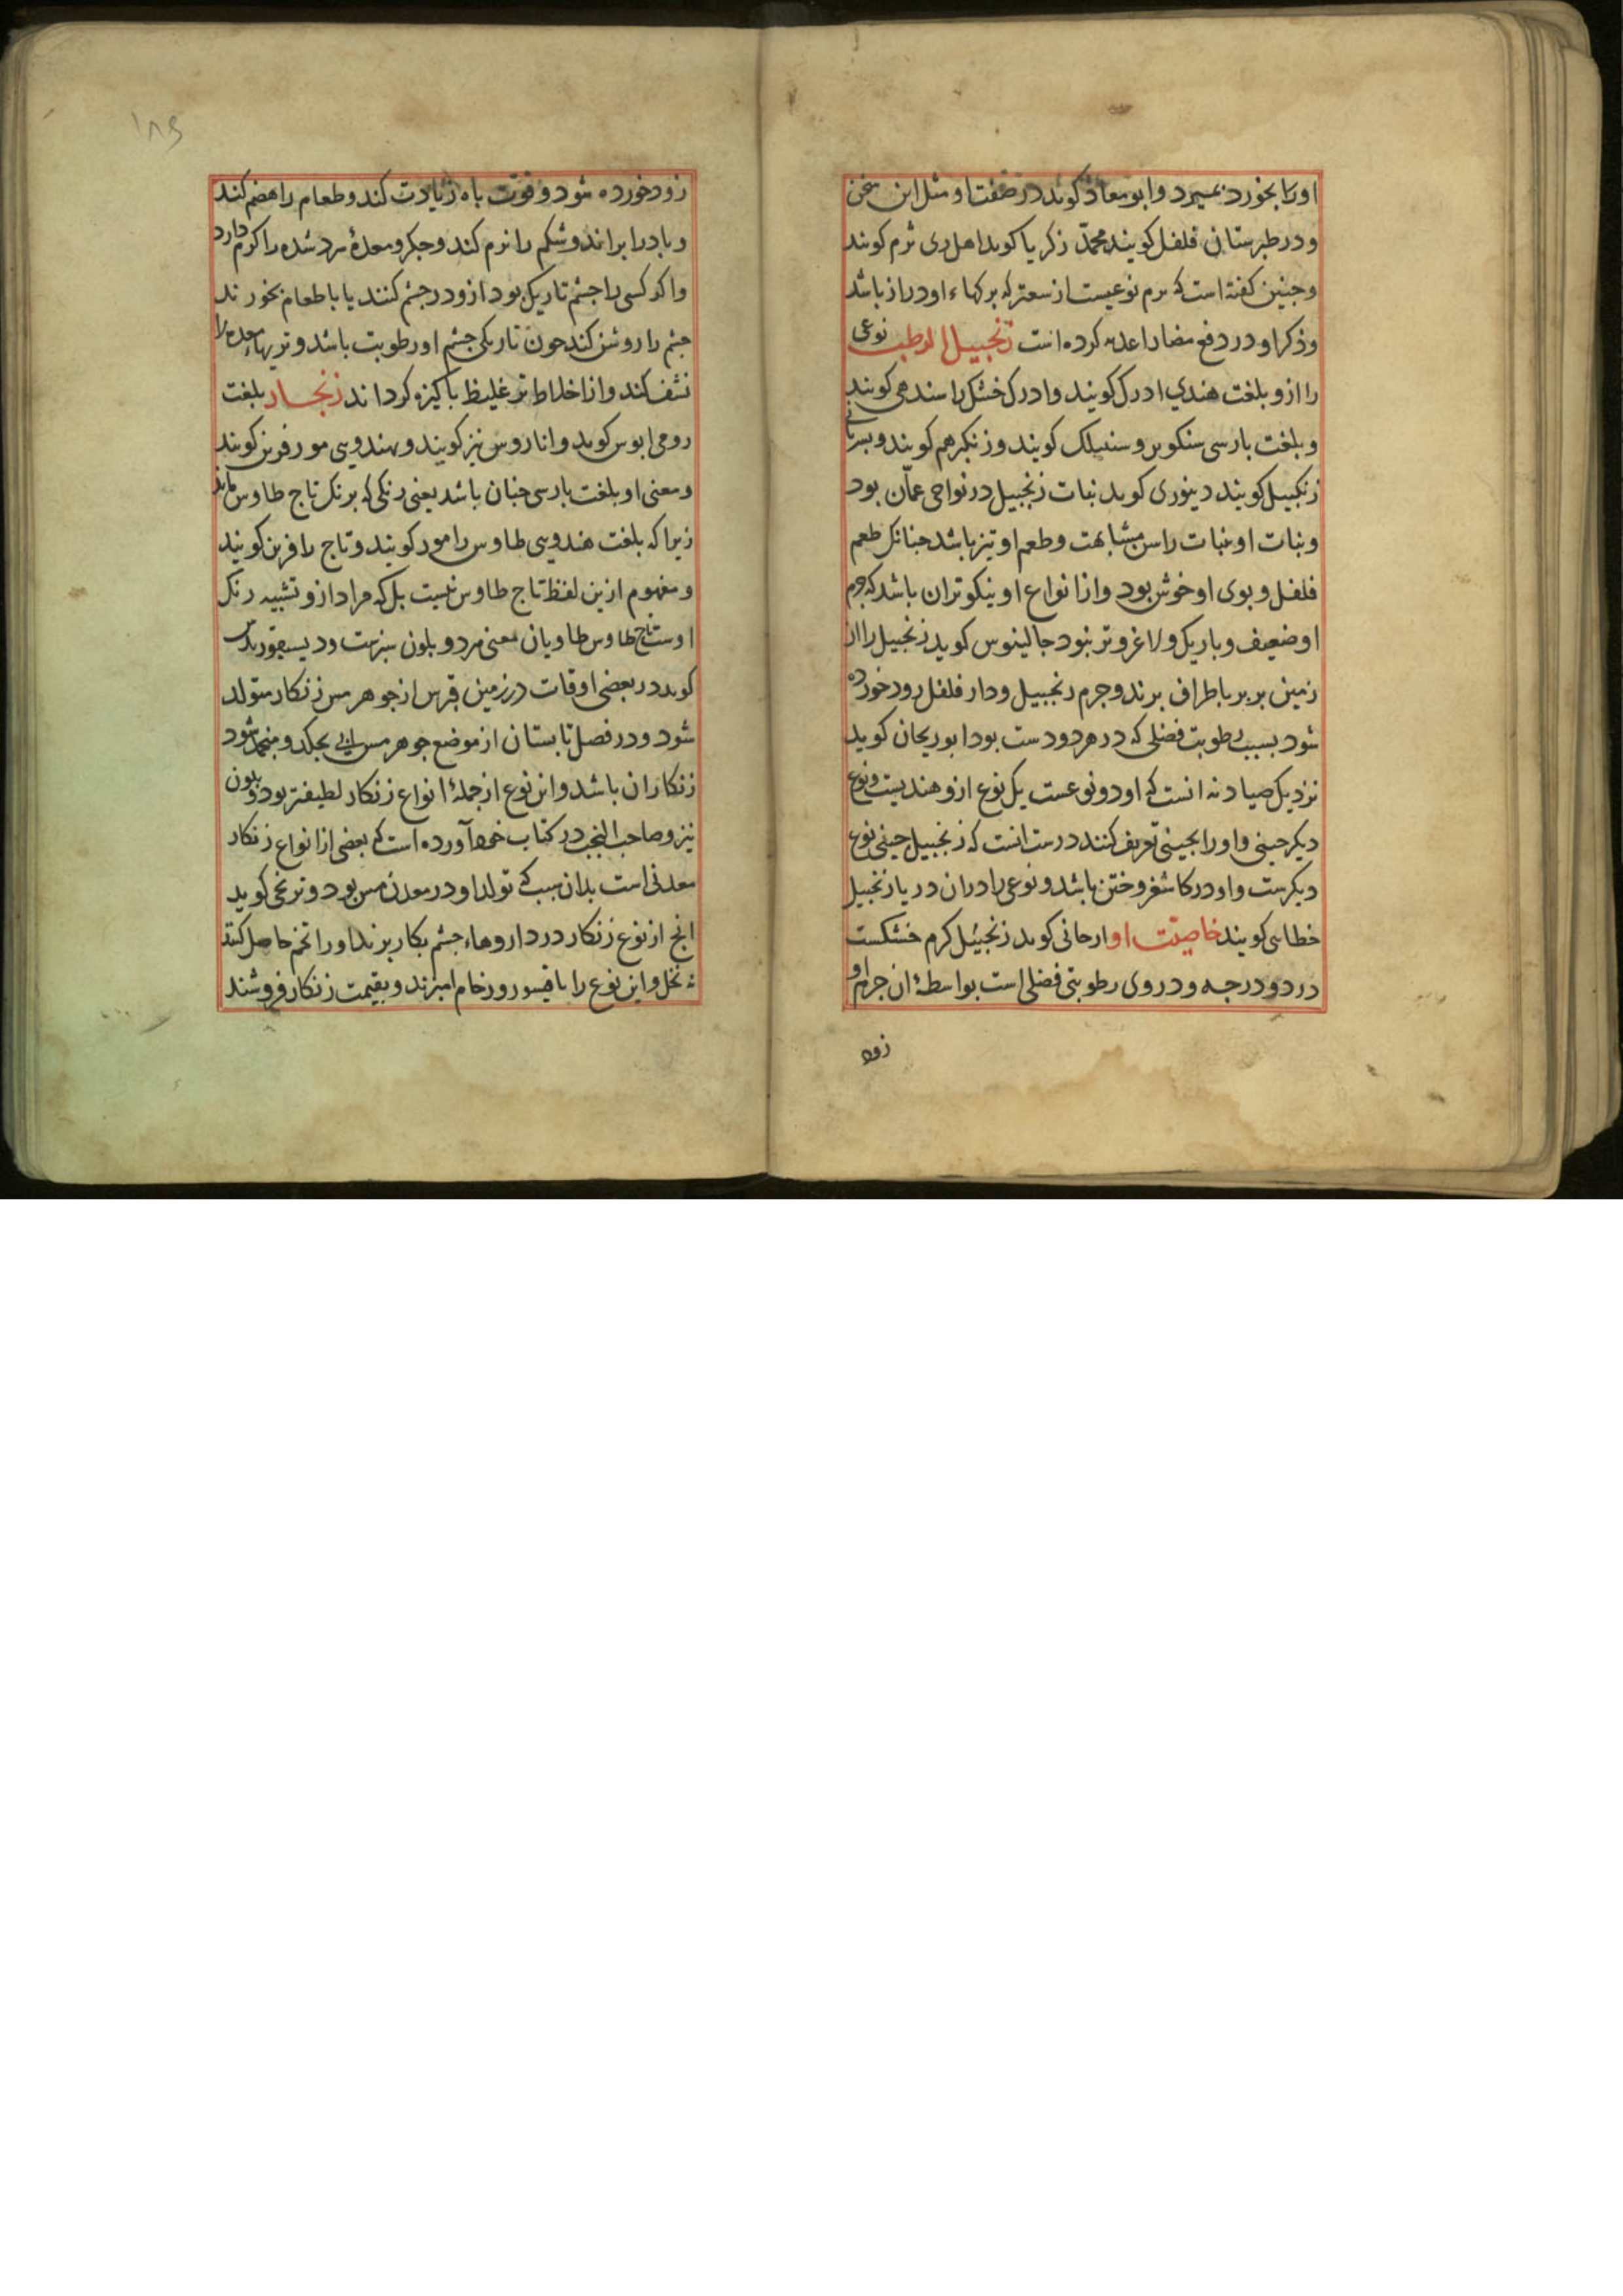 اورا بخورد بمیرد وابو معاذ کوید در صفت او مثل این سخن
ودر طبرستان فلفل کویند محمد زکریا کوید اهل ری ثرم کویند
وجنین کفته است که ثرم نوعیست از سعتر که برکهاء او دراز باشد
وذکر او در دفع مضار اغذیه کرده است زنجبیل الرطب نوعی
را ازو بلغت هندی ادرک کویند وادرک خشک را سندهی کویند
وبلغت بارسی سنکویر و سنبلک کویند وزنکبر هم کویند وبسریانی
زنکبیل کویند دینوری کوید نبات زنجبیل در نواحی عمّان بود
ونبات او بنبات راسن مشابهت وطعم او تیز باشد جنانک طعم
فلفل وبوی او خوش بود وازانواع او نیکوتر ان باشد که جرم
او ضعیف وباریک ولاغر وتر نبود جالینوس کوید زنجبیل را از
زمین بربر باطراف برند وجرم زنجبیل ودار فلفل زود خورده
شود بسبب رطوبت فضلی که در هر دو دست بود ابو ریحان کوید
نزدیک صیادنه انست که او دو نوعست یک نوع ازو هندیست ونوع
دیکر جینی واورا بجینی تعریف کنند درست انست که زنجبیل جینی نوع
دیکرست واو در کاشغر وختن باشد ونوعی را در ان دریا زنجبیل
خطاسی کویند خاصیت او ارجانی کوید زنجبیل کرم خشکست
در دو درجه ودر وی رطوبتی فضلی است بواسطهٔ ان جرم او
زود
۱۸۶
زود خورده شود وقوت باه زیادت کند وطعام را هضم کند
وباد را براند وشکم را نرم کند وجکر ومعدهٔ سرد شده را کرم دارد
واکر کسی را جشم تاریک بود ازو در جشم کنند یا با طعام بخورند
جشم را روشن کند جون تاریکی جشم او رطوبت باشد وتریهاء معده را
نشف کند واز اخلاط تر غلیظ باکیزه کرداند زنجار بلغت
رومی ایوس کوید واناروس نیز کویند وبهندویی مور فرین کویند
ومعنی او بلغت بارسی جنان باشد یعنی رنکی که برنک تاج طاوس ماند
زیرا که بلغت هندویی طاوس را مور کویند وتاج را فرین کویند
ومفهوم ازین لفظ تاج طاوس نیست بل که مراد ازو تشبیه رنک
اوست تاج طاوس طاویان معنی مرد وبلون سبزست ودیسقوریدس
کوید در بعضی اوقات در زمین قبرس از جوهر مس زنکار متولد
شود ودر فصل تابستان از موضع جوهر مس ابی بجکد ومنجمد شود
زنکار ان باشد واین نوع از جملهٔ انواع زنکار لطیفتر بود وبلون
نیز وصاحب النخب در کتاب خود آورده است که بعضی از انواع زنکار
معدنی است بدان سبب که تولد او در معدن مس بود وترنجی کوید
انج از نوع زنکار در داروهاء جشم بکار برند اورا تخم حاصل کنند
نخل واین نوع را با قیسور ورخام امیزند وبقیمت زنکار فروشند